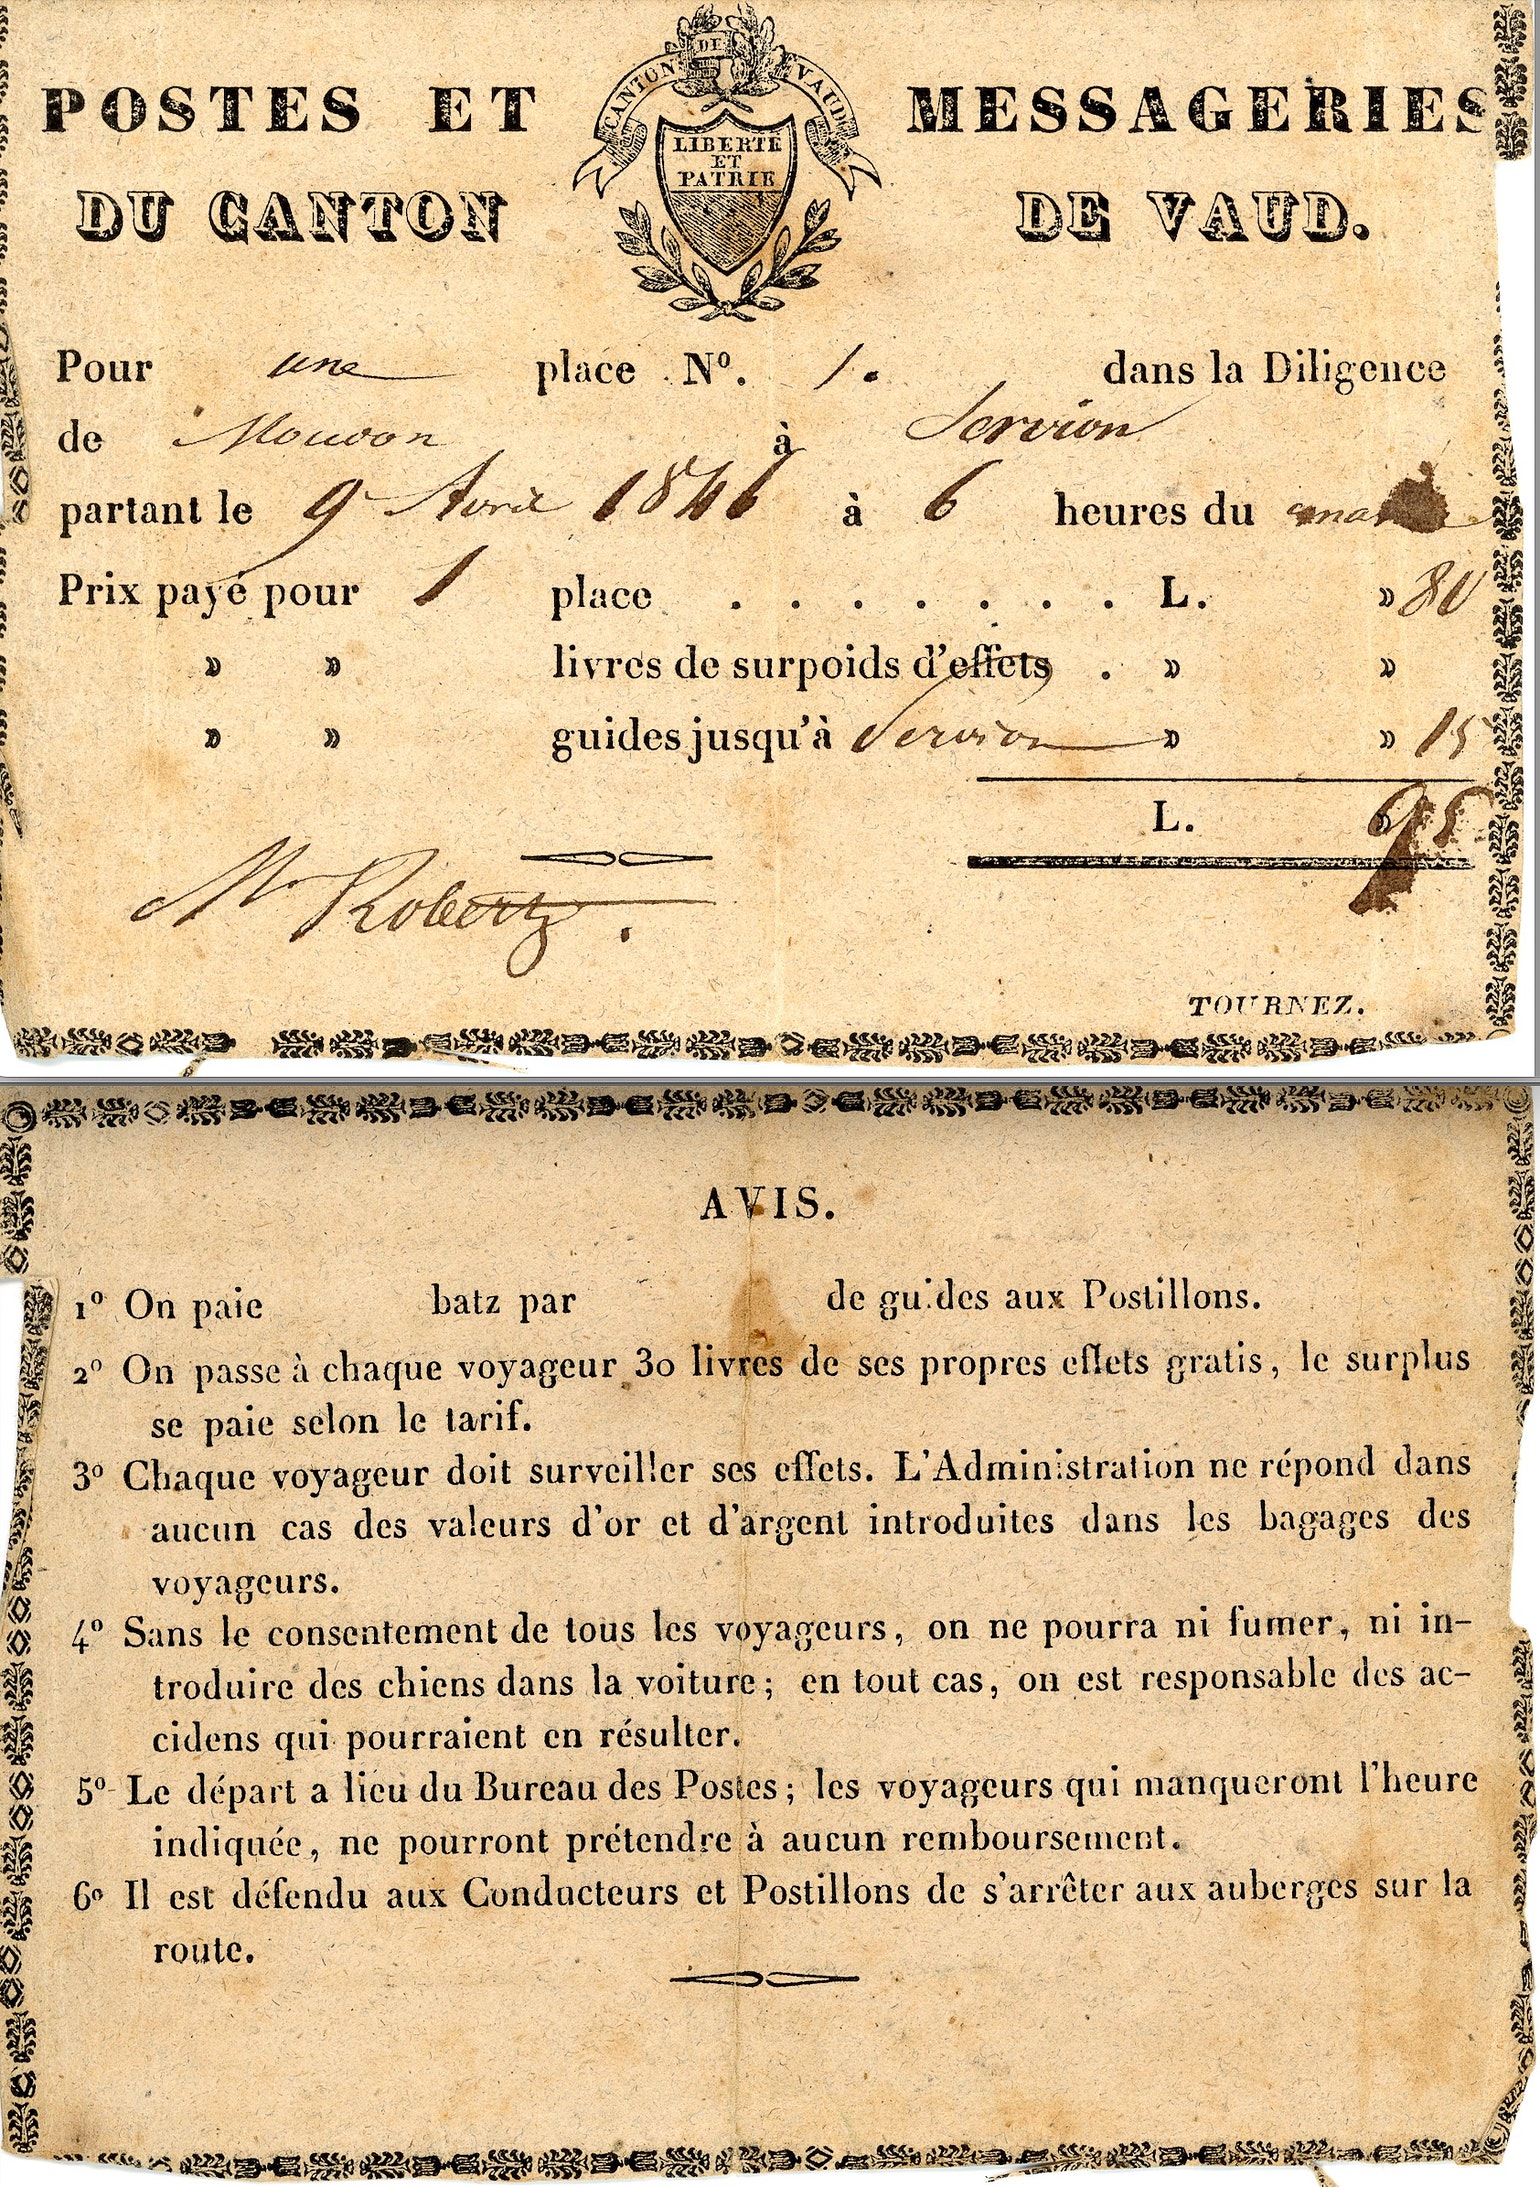 CANTON DE VAUD
LIBERTE
ET
PATRIE
POSTES ET MESSAGERIES
DU CANTON DE VAUD.
Pour une place Nº. 1. dans la Diligence
de Moudon à Servion
partant le 9 Avril 1846 à 6 heures du
Prix payé pour 1 place . . . . . . . L. » 80
» » livres de surpoids d'effets . » »
» » guides jusqu'à Servion » » 15
L. » 95
Mr Robertz.
TOURNEZ.
AVIS.
1º On paie batz par de guides aux Postillons.
2º On passe à chaque voyageur 30 livres de ses propres effets gratis, le surplus
se paie selon le tarif.
3º Chaque voyageur doit surveiller ses effets. L'Administration ne répond dans
aucun cas des valeurs d'or et d'argent introduites dans les bagages des
voyageurs.
4º Sans le consentement de tous les voyageurs, on ne pourra ni fumer, ni in-
troduire des chiens dans la voiture; en tout cas, on est responsable des ac-
cidens qui pourraient en résulter.
5º Le départ a lieu du Bureau des Postes; les voyageurs qui manqueront l'heure
indiquée, ne pourront prétendre à aucun remboursement.
6º Il est défendu aux Conducteurs et Postillons de s'arrêter aux auberges sur la
route.